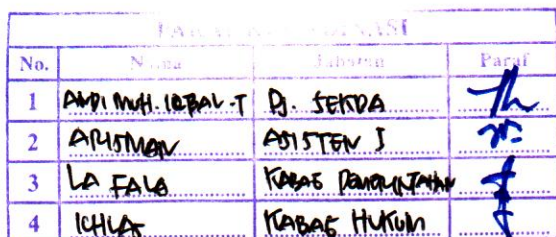 PARAF KOORDINASI
No. Nama Jabatan Paraf
1 ANDI MUH. IQBAL -T Pj. SEKDA
2 ARISMAN ASISTEN I
3 LA FALA KABAG PEMERINTAHAN
4 ICHLAS KABAG HUKUM